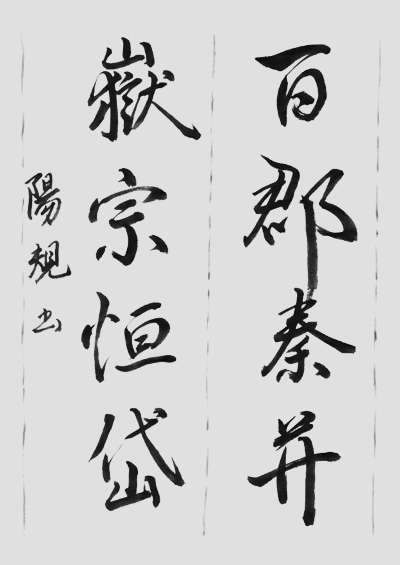 百郡秦并
嶽宗恒岱
陽規书